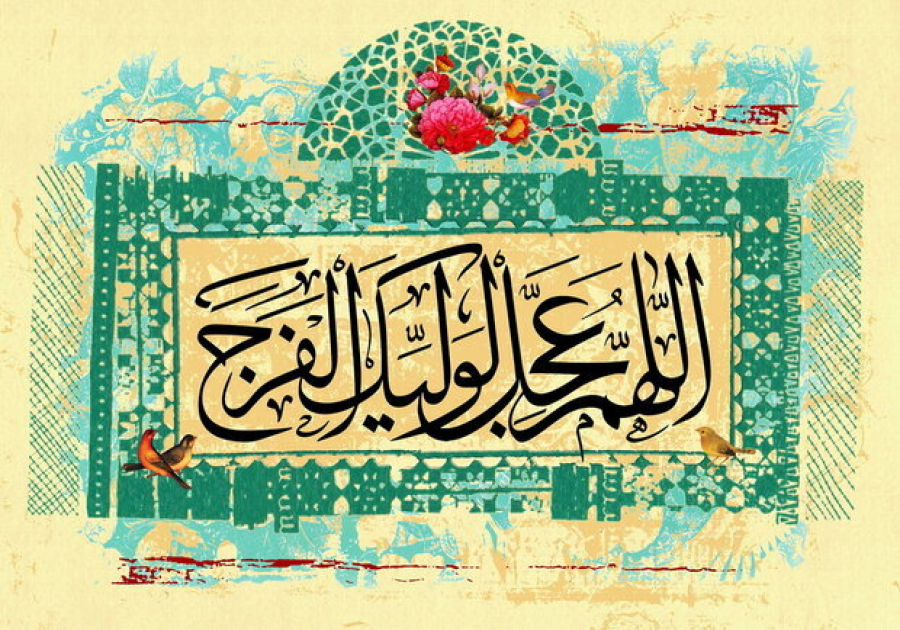 اللّهمّ عجّل لوليّك الفرج